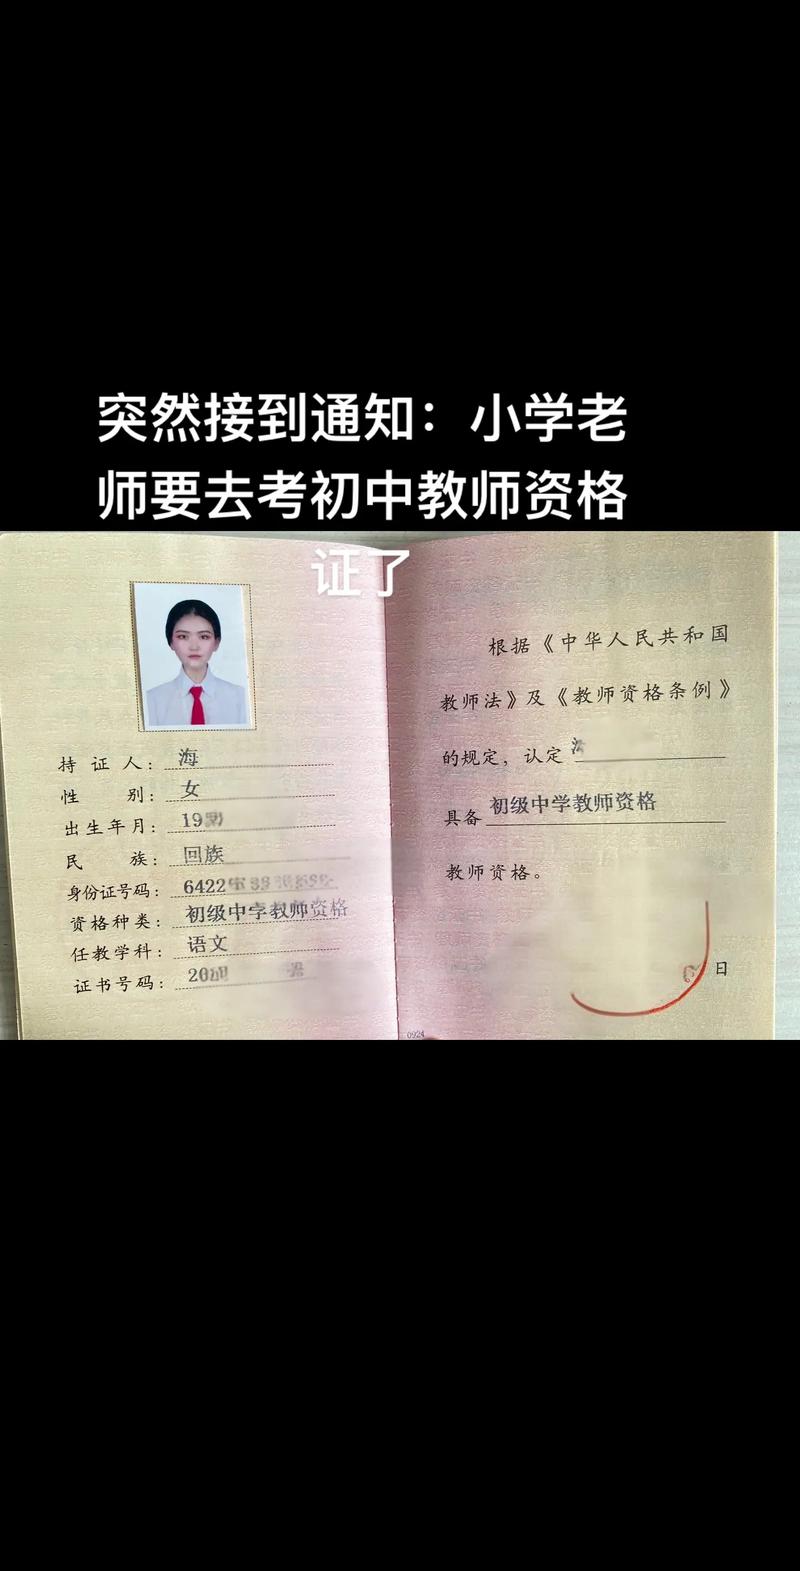 突然接到通知：小学老
师要去考初中教师资格
证了
持证人：海
性别：女
出生年月：19
民族：回族
身份证号码：6422
资格种类：初级中学教师资格
任教学科：语文
证书号码：20
根据《中华人民共和国
教师法》及《教师资格条例》
的规定，认定
具备 初级中学教师资格
教师资格。
日
0924